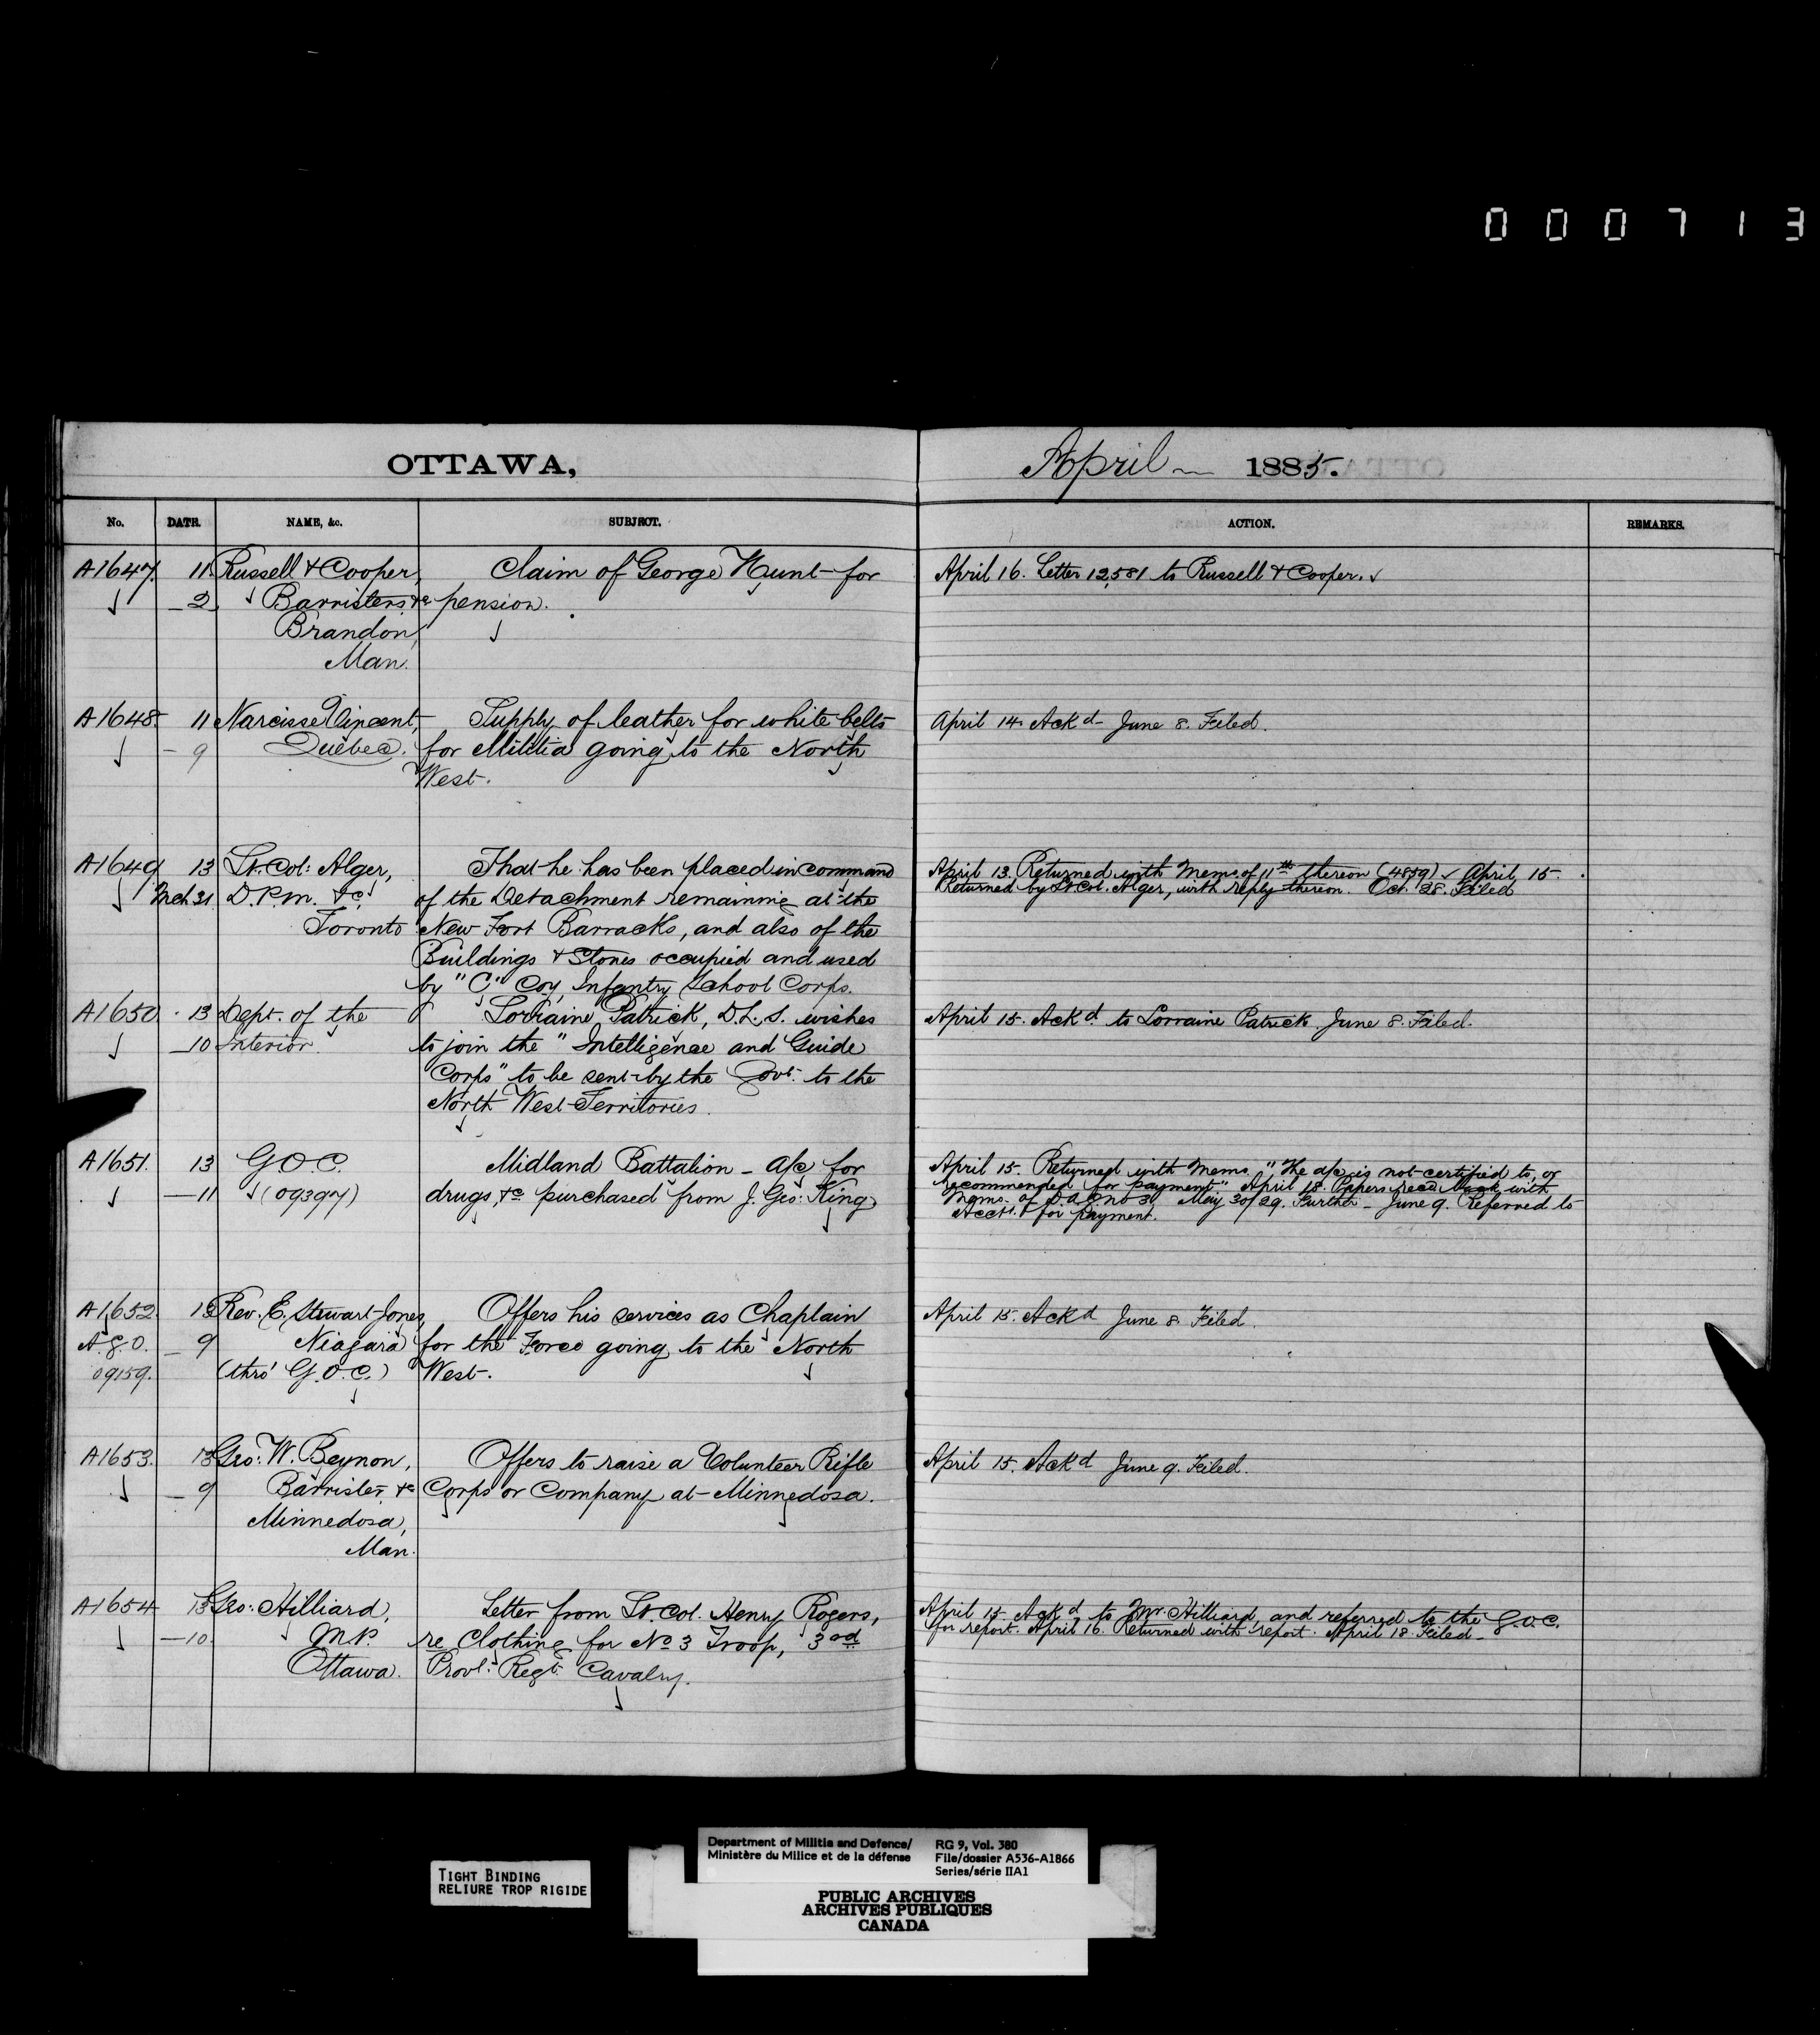 000713
OTTAWA, April 1885.
No. DATE. NAME, &c. SUBJECT. ACTION. REMARKS.
A1647 11 Russell & Cooper, Claim of George Hunt for April 16. Letter 12,581 to Russell & Cooper.
2 Barristers &c pension.
Brandon,
Man.
A1648 11 Narcisse Vincent, Supply of leather for white belts April 14. Ackd June 8. Filed.
9 Quebec. for Militia going to the North
West.
A1649 13 Lt. Col: Alger, That he has been placed in command April 13. Returned with Memo. of 11th thereon (4859) April 15.
Mch 31 D.P.M. &c. of the Detachment remaining at the Returned by Lt Col. Alger, with reply thereon. Oct. 28. Filed
Toronto New Fort Barracks, and also of the
Buildings & Stores occupied and used
by "C" Coy Infantry School Corps.
A1650 13 Dept. of the Lorraine Patrick, D.L.S. wishes April 15. Ackd to Lorraine Patrick June 8. Filed.
10 Interior. to join the "Intelligence and Guide
Corps" to be sent by the Govt. to the
North West Territories.
A1651. 13 G.O.C. Midland Battalion - a/c for April 15. Returned with Memo. "The a/c is not certified to, or
11 (09397) drugs, &c purchased from J. Geo: King recommended for payment" April 18. Papers recd back with
Memo. of D.A.G. no 3 May 30/29. Further - June 9. Referred to
Acct. for payment.
A1652. 13 Rev. E. Stewart-Jones, Offers his services as Chaplain April 15. Ackd June 8. Filed.
A.G.O. 9 Niagara for the Force going to the North
09159. (thro' G.O.C.) West.
A1653. 13 Geo: W. Beynon, Offers to raise a Volunteer Rifle April 15. Ackd June 9. Filed.
9 Barrister &c Corps or Company at Minnedosa.
Minnedosa,
Man.
A1654 13 Geo: Hilliard, Letter from Lt. Col. Henry Rogers, April 15. Ackd to Mr. Hilliard, and referred to the G.O.C.
10. M.P. re Clothing for No 3 Troop, 3rd for report. April 16. Returned with report. April 18. Filed
Ottawa. Provl: Regt. Cavalry.
TIGHT BINDING
RELIURE TROP RIGIDE
Department of Militia and Defence/ RG 9, Vol. 380
Ministère du Milice et de la défense File/dossier A536-A1866
Series/série IIA1
PUBLIC ARCHIVES
ARCHIVES PUBLIQUES
CANADA